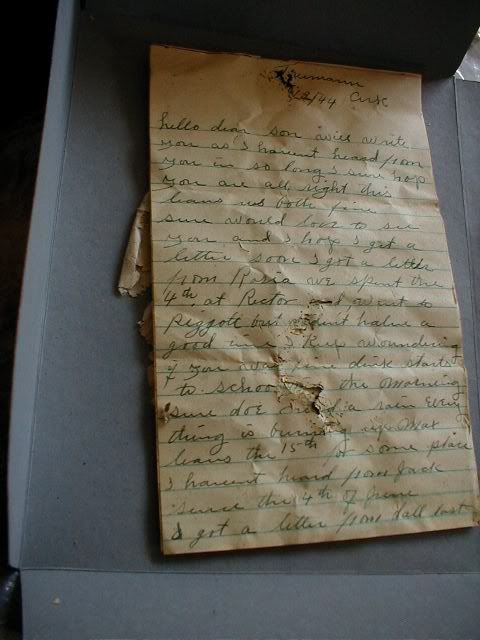 Trumann
/44 Ark
hello dear son will write
you as I havent heard from
you in so long I sure hop
you are all right this
leavs us both fine
sure would love to see
you and I hop I get a
letter soon I got a letter
from Rosia we spent the
4th at Rector and went to
Piggott but didnt have a
good time I keep woundering
if you war fine dick started
to school in the morning
sure doe need a rain every
thing is burning up Max
leavs the 15th for some place
I havent heard from Jack
since the 4th of June
I got a letter from dall last